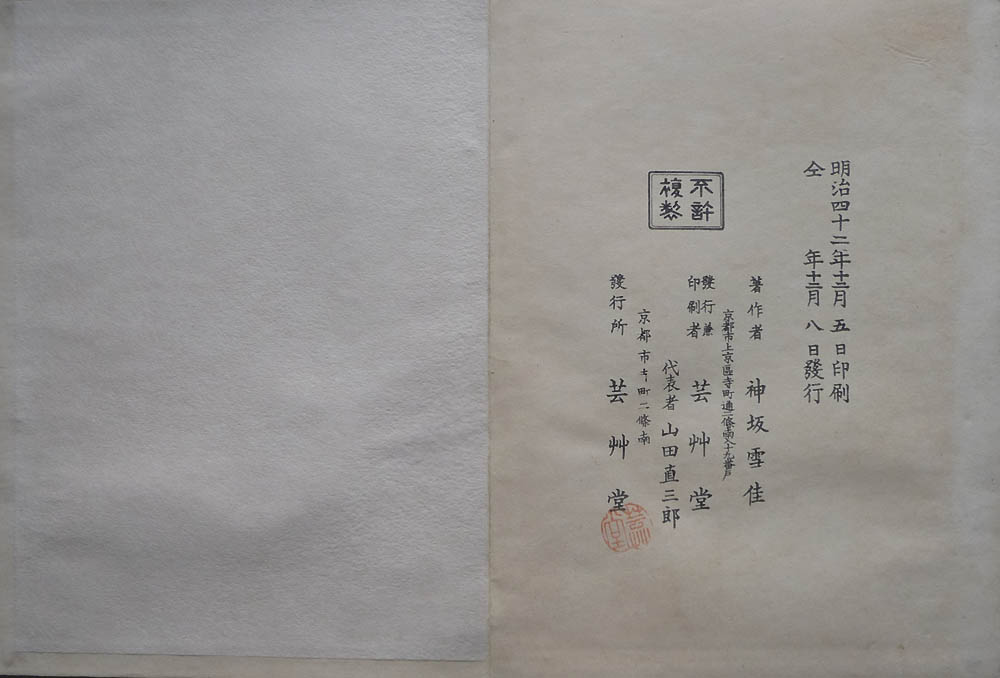 明治四十二年十二月五日印刷
仝年十二月八日發行
不許
複製
著作者 神坂雪佳
京都市上京區寺町通二條南入十九番戸
發行兼
印刷者 芸艸堂
代表者 山田直三郎
京都市寺町二條南
發行所 芸艸堂